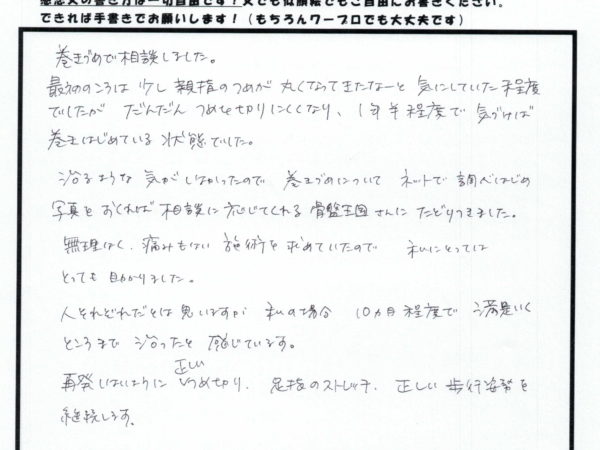 感想文の書き方は一切自由です！文でも似顔絵でもご自由にお書きください。
できれば手書きでお願いします！（もちろんワープロでも大丈夫です）
巻きづめで相談しました。
最初のころは少し親指のつめが丸くなってきたなーと気にしていた程度
でしたがだんだんつめを切りにくくなり、1年半程度で気づけば
巻きはじめている状態でした。
治るような気がしなかったので巻きづめについてネットで調べはじめ
写真をおくれば相談に応じてくれる骨盤王国さんにたどりつきました。
無理なく、痛みもない施術を求めていたので私にとっては
とっても助かりました。
人それぞれだとは思いますが私の場合10カ月程度で満足いく
ところまで治ったと感じています。
正しい
再発しないようにつめ切り、足指のストレッチ、正しい歩行姿勢を
継続します。